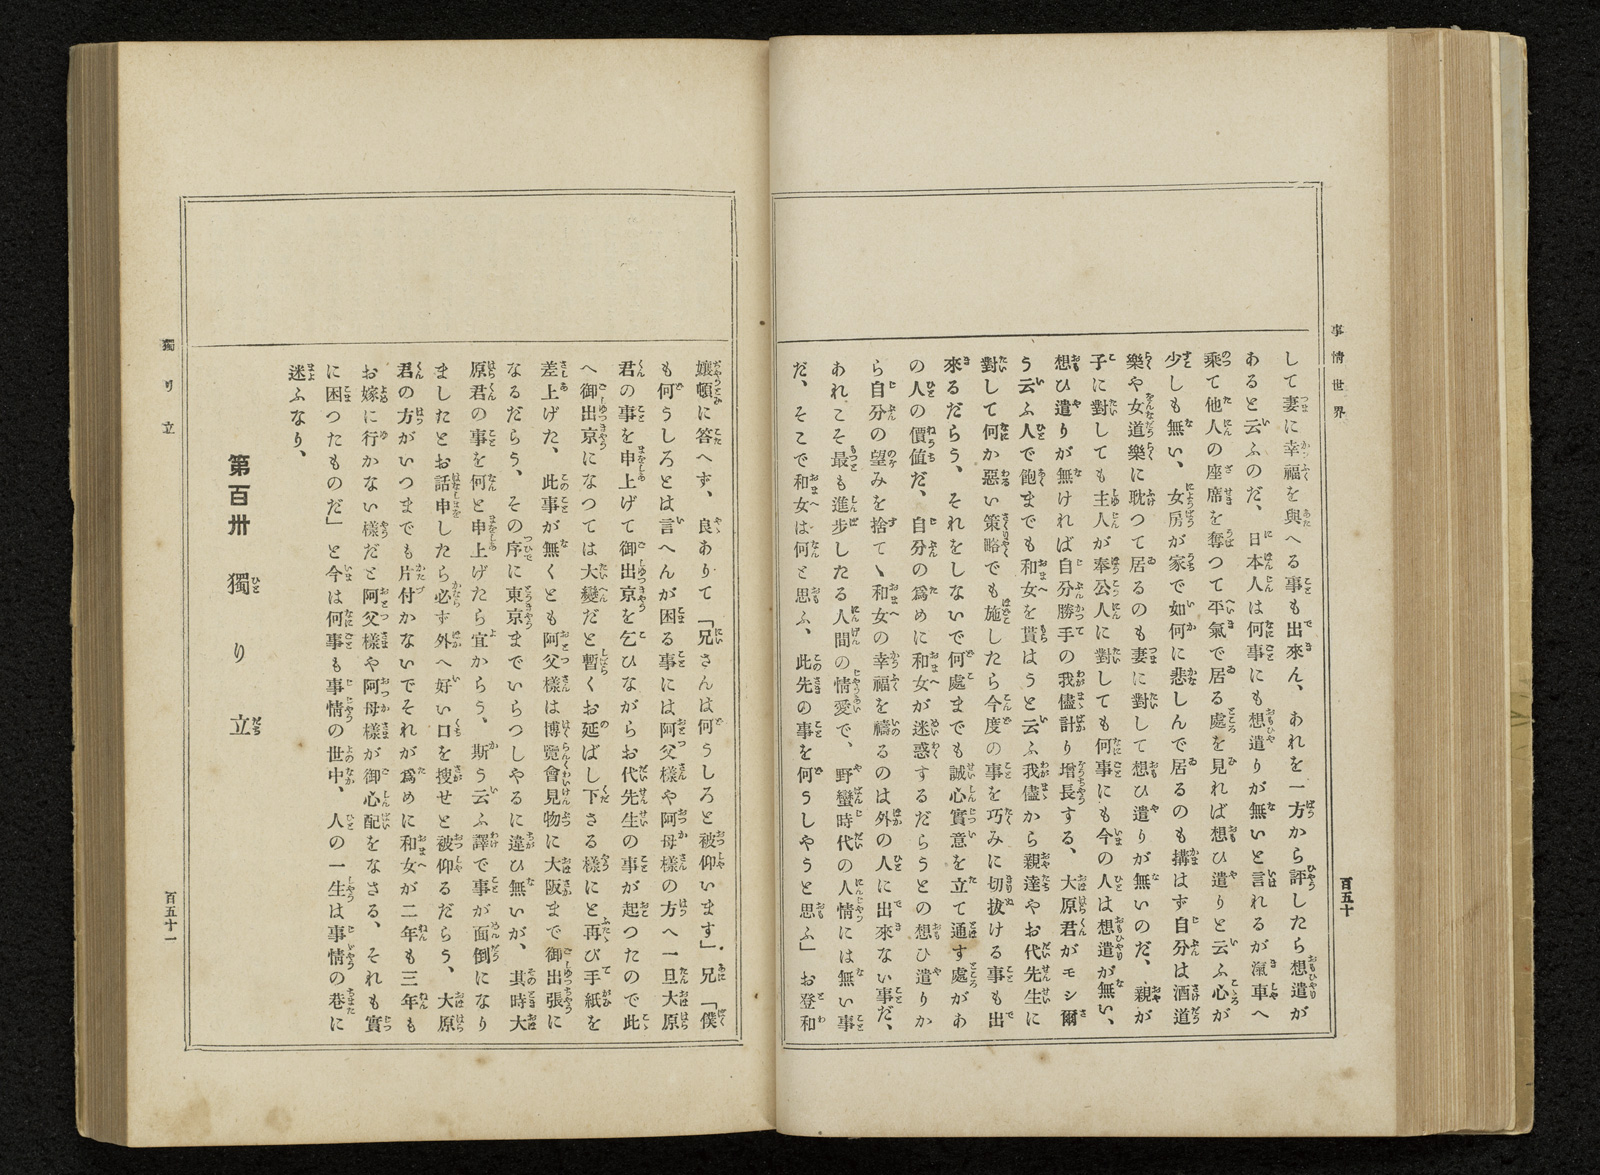 事情世界
百五十
して妻に幸福を與へる事も出來ん、あれを一方から評したら想遣が
あると云ふのだ、日本人は何事にも想遣りが無いと言れるが滊車へ
乘て他人の座席を奪つて平氣で居る處を見れば想ひ遣りと云ふ心が
少しも無い、女房が家で如何に悲しんで居るのも搆はず自分は酒道
樂や女道樂に耽つて居るのも妻に對して想ひ遣りが無いのだ、親が
子に對しても主人が奉公人に對しても何事にも今の人は想遣が無い、
想ひ遣りが無ければ自分勝手の我儘計り增長する、大原君がモシ爾
う云ふ人で飽までも和女を貰はうと云ふ我儘から親達やお代先生に
對して何か惡い策略でも施したら今度の事を巧みに切拔ける事も出
來るだらう、それをしないで何處までも誠心實意を立て通す處があ
の人の價値だ、自分の爲めに和女が迷惑するだらうとの想ひ遣りか
ら自分の望みを捨てゝ和女の幸福を禱るのは外の人に出來ない事だ、
あれこそ最も進步したる人間の情愛で、野蠻時代の人情には無い事
だ、そこで和女は何と思ふ、此先の事を何うしやうと思ふ」お登和
孃頓に答へず、良ありて「兄さんは何うしろと被仰います」兄「僕
も何うしろとは言へんが困る事には阿父樣や阿母樣の方へ一旦大原
君の事を申上げて御出京を乞ひながらお代先生の事が起つたので此
へ御出京になつては大變だと暫くお延ばし下さる樣にと再び手紙を
差上げた、此事が無くとも阿父樣は博覽會見物に大阪まで御出張に
なるだらう、その序に東京までいらつしやるに違ひ無いが、其時大
原君の事を何と申上げたら宜からう、斯う云ふ譯で事が面倒になり
ましたとお話申したら必ず外へ好い口を搜せと被仰るだらう、大原
君の方がいつまでも片付かないでそれが爲めに和女が二年も三年も
お嫁に行かない樣だと阿父樣や阿母樣が御心配をなさる、それも實
に困つたものだ」と今は何事も事情の世中、人の一生は事情の巷に
迷ふなり、
第百卅　獨り立
獨り立
百五十一